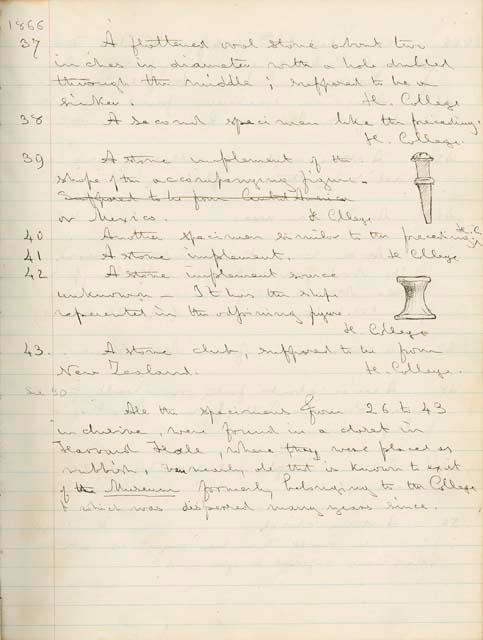 1866
37 A flattened oval stone about two
inches in diameter with a hole drilled
through the middle; supposed to be a
sinker. H. College
38 A second specimen like the preceding.
H. College.
39 A stone implement of the
shape of the accompanying figure.
Supposed to be from Central America
or Mexico. H College
40 Another specimen similar to the preceding. H.C.
41 A stone implement. H College
42 A stone implement source
unknown — It has the shape
represented in the adjoining figure
H College
43. A stone club, supposed to be from
New Zealand. H. College.
see 30
All the specimens from 26 to 43
inclusive, were found in a closet in
Harvard Hall, where they were placed as
rubbish, nearly all that is known to exist
of the Museum formerly belonging to the College
& which was dispersed many years since.